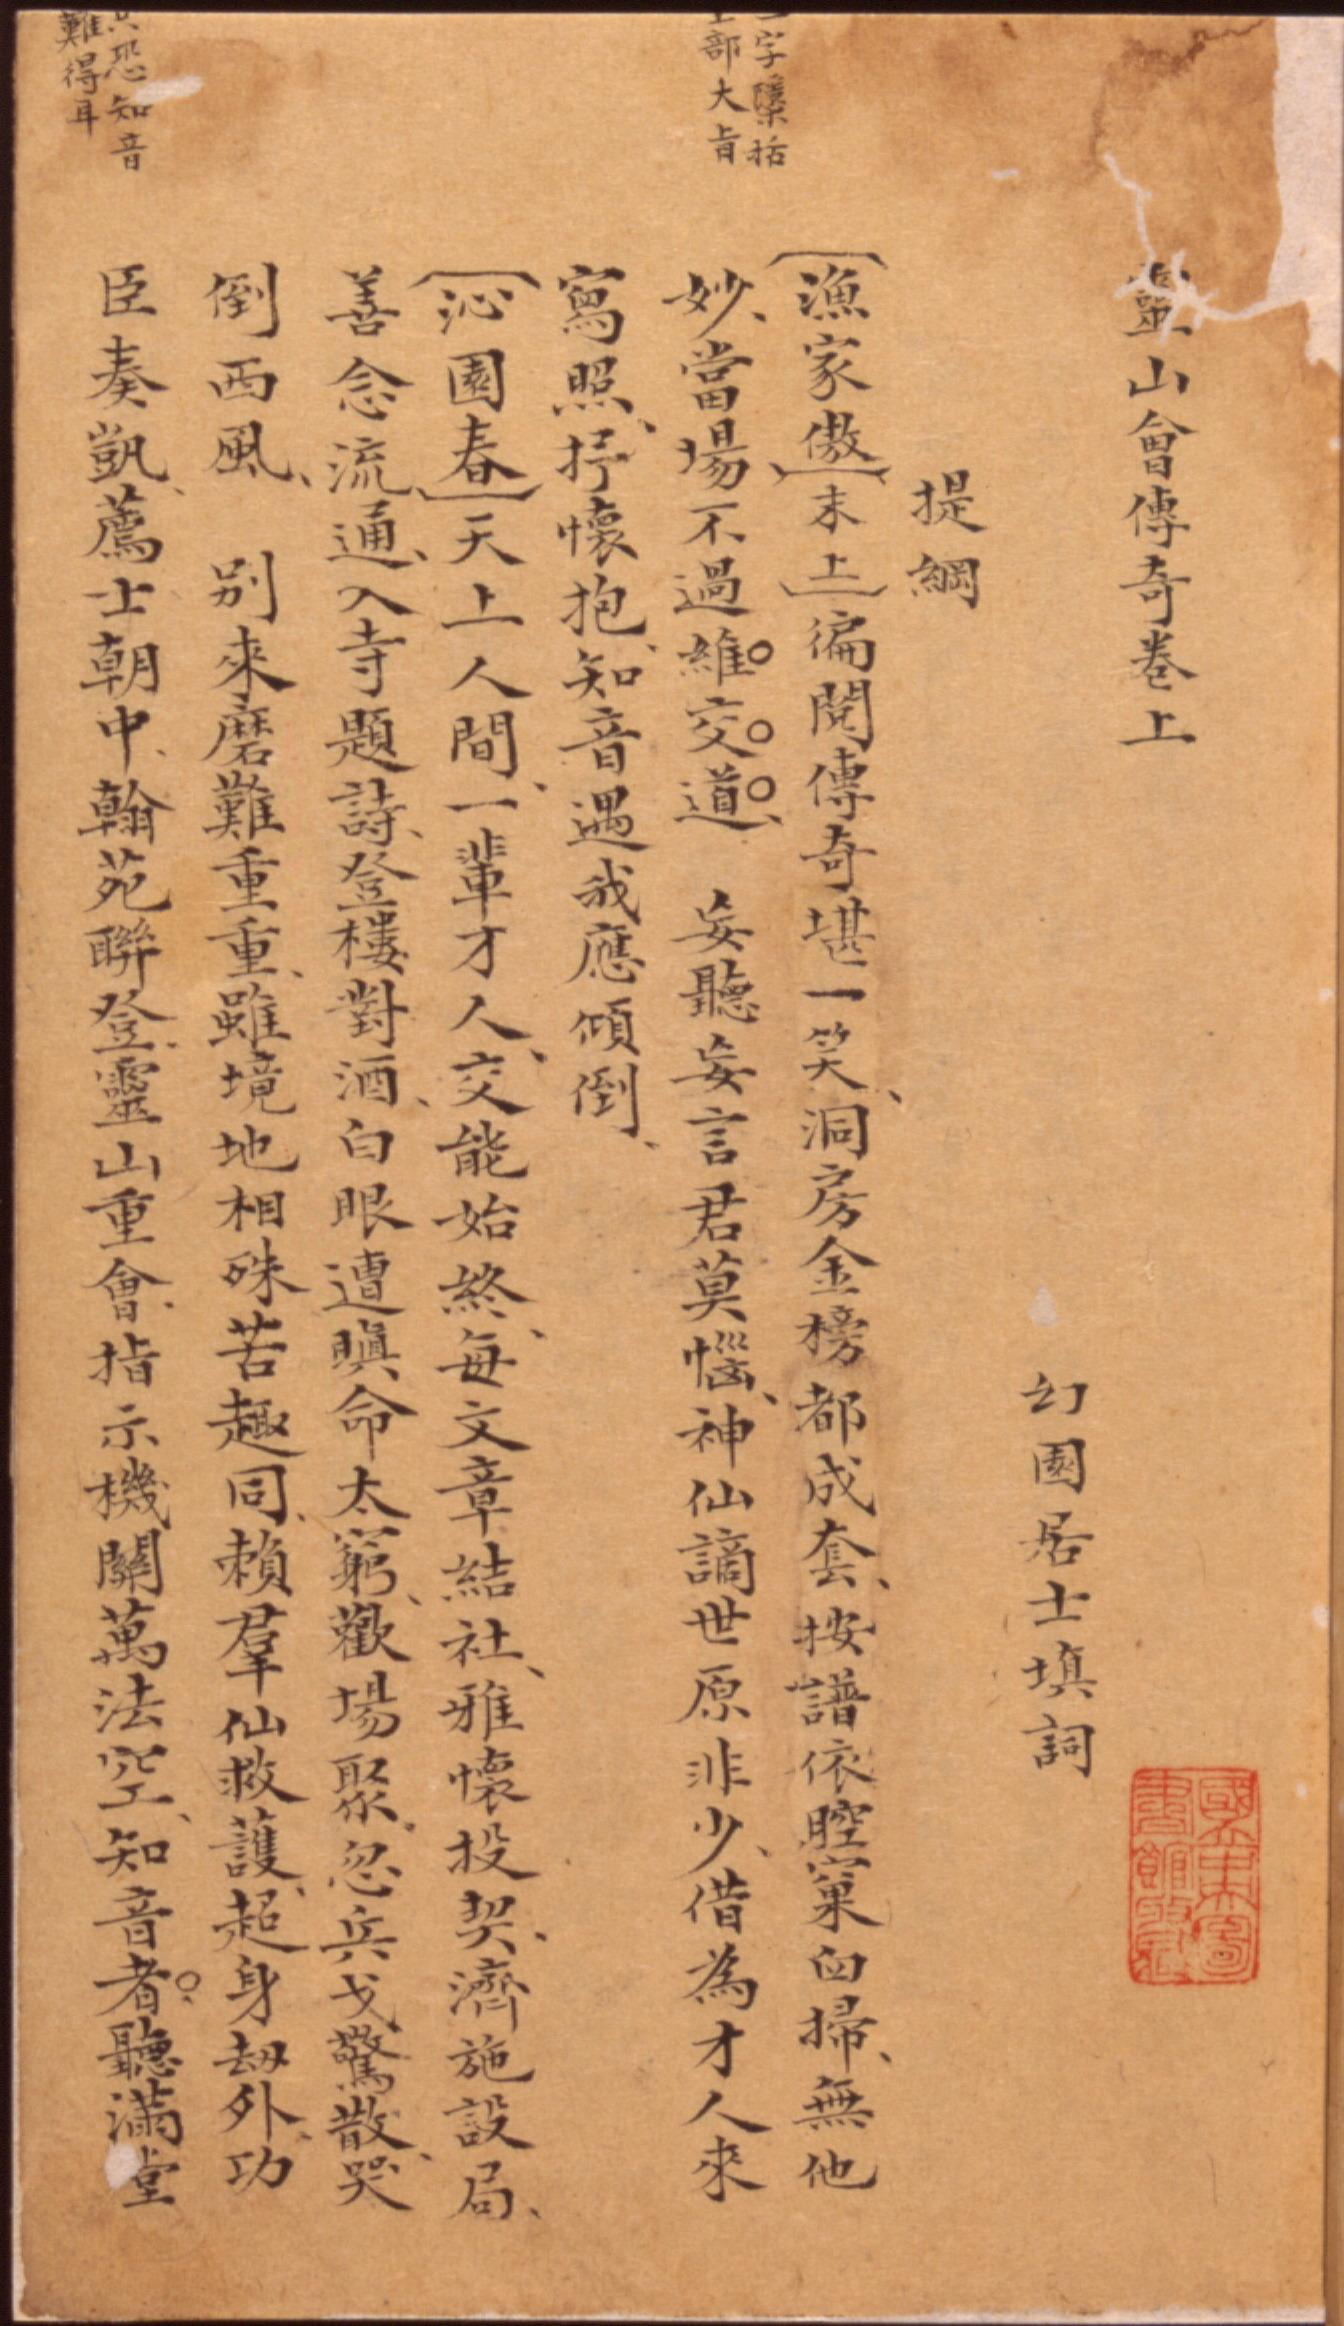 靈山會傳奇卷上
幻園居士填詞
國立中央圖
書館收藏
提綱
字隱括
部大旨
〔漁家傲〕〔末上〕徧閱傳奇堪一笑、洞房金榜都成套、按譜依腔窠臼掃、無他
妙、當場不過維交道、　妄聽妄言君莫惱、神仙謫世原非少、借為才人來
寫照、抒懷抱、知音遇我應傾倒、
〔沁園春〕天上人間、一輩才人、交能始終、每文章結社、雅懷投契、濟施設局、
善念流通、入寺題詩、登樓對酒、白眼遭瞋命太窮、歡場聚、忽兵戈驚散、哭
倒西風、　別來磨難重重、雖境地相殊苦趣同、賴羣仙救護、超身劫外、功
臣奏凱、薦士朝中、翰苑聯登、靈山重會、指示機關萬法空、知音者、聽滿堂
恐知音
難得耳